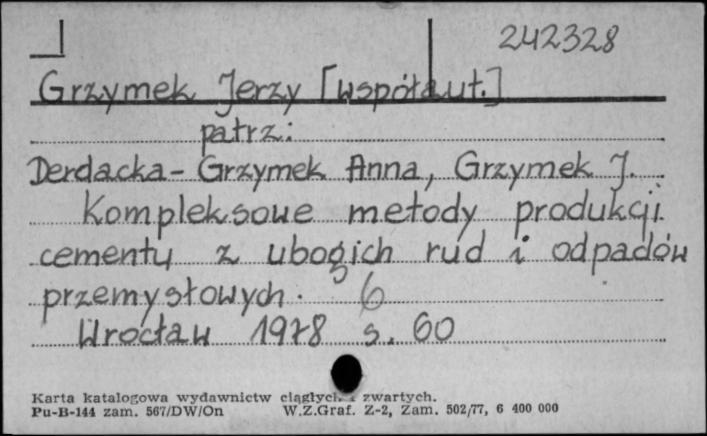 242328
Grzymek Jerzy [współaut.]
patrz:
Derdacka-Grzymek Anna, Grzymek J.
Kompleksowe metody produkcji
cementu z ubogich rud i odpadów
przemysłowych. 6
Wrocław 1978 s. 60
Karta katalogowa wydawnictw ciągłych i zwartych.
Pu-B-144 zam. 567/DW/On W.Z.Graf. Z-2, Zam. 502/77, 6 400 000